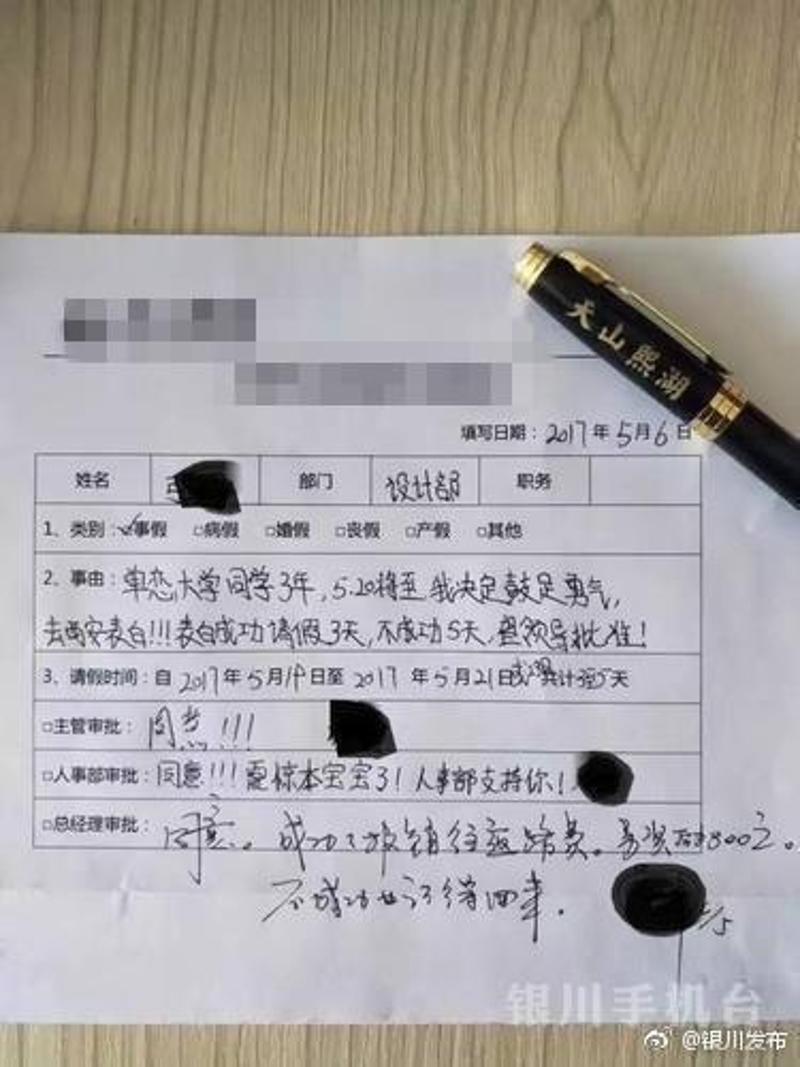 天山熙湖
填写日期：2017年5月6日
姓名 部门 设计部 职务
1、类别：☑事假 □病假 □婚假 □丧假 □产假 □其他
2、事由：单恋大学同学3年，5.20将至 我决定鼓足勇气，
去西安表白!!!表白成功请假3天，不成功5天，望领导批准！
3、请假时间：自2017年5月19日至2017年5月21日或 共计3或5天
□主管审批：同意!!!
□人事部审批：同意!!!要惊本宝宝了！人事部支持你！
□总经理审批：同意。成功了报销往返路费。另奖 800元。
不成功也记得回来.
6/5
银川手机台
@银川发布